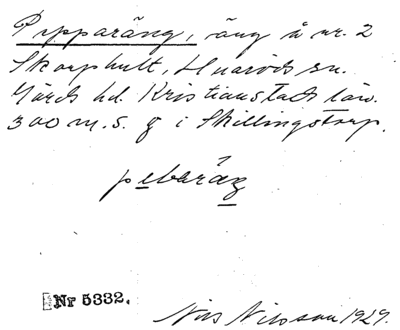 Pepparäng, äng å nr. 2
Skorphult, Huaröds sn.
Gärds hd. Kristianstads län.
300 m. S. g i Skillingstorp.
pebaräŋ
Nr 5332.
Nils Nilsson 1929.